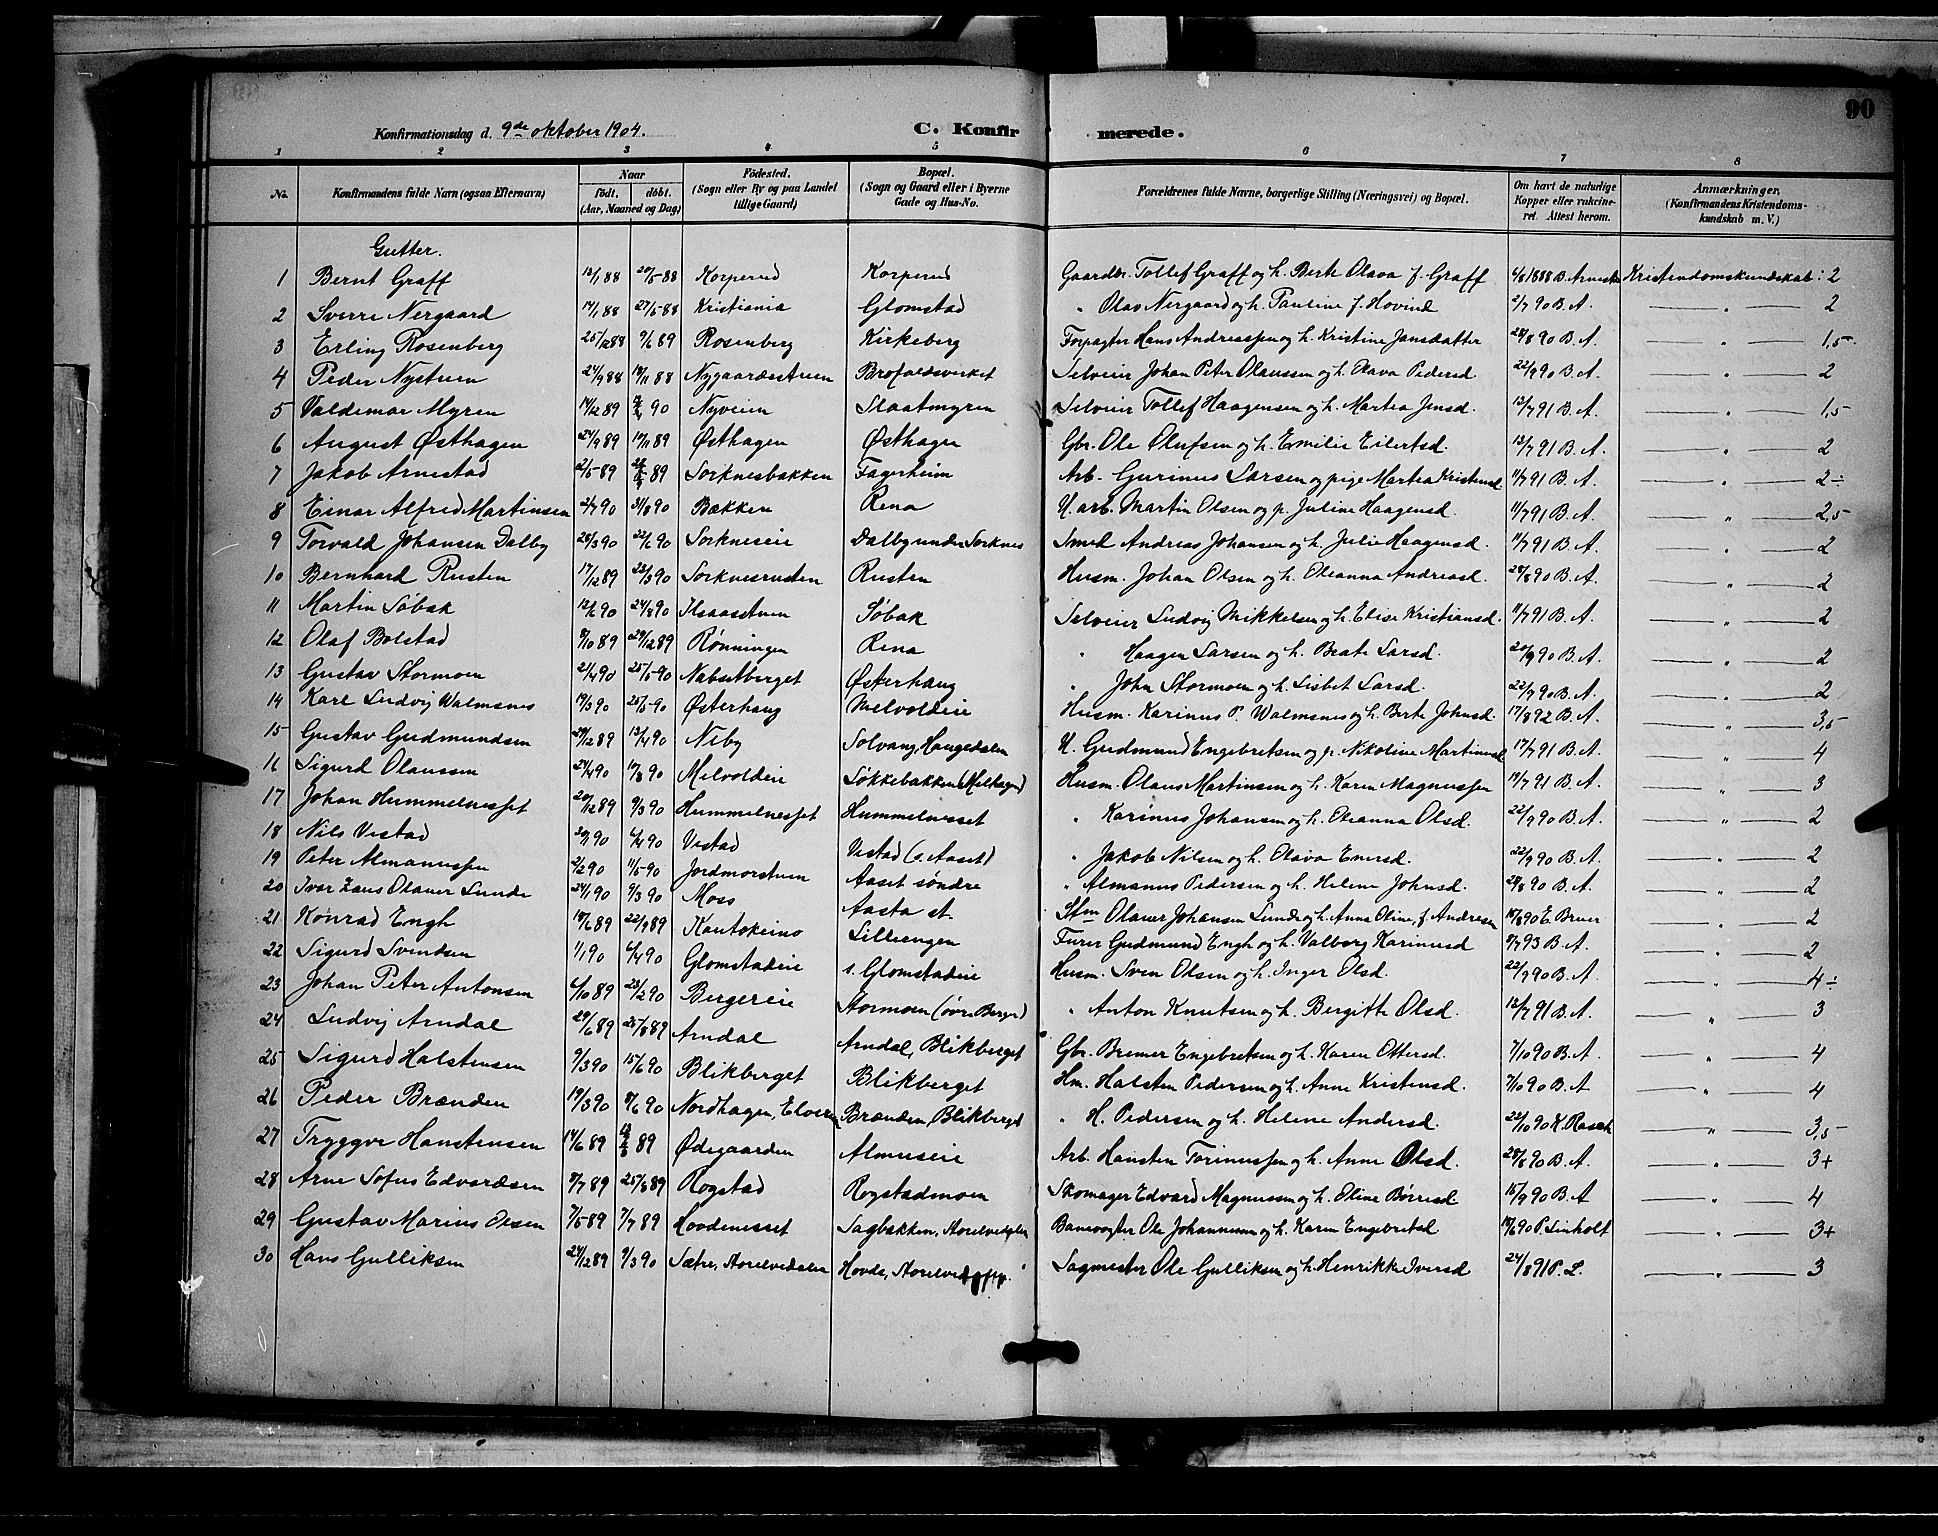 90
Konfirmationsdag d. 9de oktober 1904. C. Konfirmerede.
1 2 3 4 5 6 7 8
No. Konfirmandens fulde Navn (ogsaa Efternavn) Naar født. døbt. (Aar, Maaned og Dag) Fødested. (Sogn eller By og paa Landet tillige Gaard) Bopæl. (Sogn og Gaard eller i Byerne Gade og Hus-No. Forældrenes fulde Navne, borgerlige Stilling (Næringsvei) og Bopæl. Om havt de naturlige Kopper eller vakcineret. Attest herom. Anmærkninger, (Konfirmandens Kristendomskundskab m. V.)
Gutter.
1 Bernt Graff 12/1 88 20/5 88 Korperud Korperud Gaardbr. Tollef Graff og h. Berte Olava f. Graff 6/8 1888 B. Arnesen Kristendomskundskab: 2
2 Sverre Nergaard 14/1 88 27/5 88 Kristiania Glomstad " Olas Nergaard og h. Pauline f. Hovind 2/7 90 B. A. " 2
3 Erling Rosenberg 25/12 88 9/6 89 Rosenberg Kirkeberg Forpagter Hans Andreassen og h. Kristine Jansdatter 28/8 90 B. A. " 1,5
4 Peder Nystuen 24/9 88 18/11 88 Nygaardsstuen Brofoldsverket Selveier Johan Peter Olaussen og h. Olava Pedersd. 22/9 90 B. A. " 2
5 Valdemar Myren 14/12 89 90 Nyveien Slaatmyren Selveier Tollef Haagensen og h. Martea Jensd. 13/7 91 B. A. " 1,5
6 August Østhagen 24/9 89 17/11 89 Østhagen Østhagen Gbr. Ole Olufsen og h. Emilie Eilertsd. 13/7 91 B. A. " 2
7 Jakob Arnestad 2/5 89 89 Sorknesbakken Fagerheim Arb. Gurinus Larsen og pige Martea Kristensd. 11/7 91 B. A. " 2÷
8 Einar Alfred Martinsen 2/7 90 31/8 90 Bækken Rena U. arb. Martin Olsen og p. Juline Haagensd. 11/7 91 B. A. " 2,5
9 Torvald Johansen Dalby 28/3 90 22/6 90 Sorkneseie Dalby under Sorknes Smed Andreas Johansen og h. Julie Haagensd. 11/7 91 B. A. " 2
10 Bernhard Rusten 17/12 89 23/3 90 Sorknesrusten Rusten Husm. Johan Olsen og h. Oleanna Andreasd. 28/8 90 B. A. " 2
11 Martin Søbak 12/2 90 24/8 90 Ilsaasstuen Søbak Selveier Ludvig Mikkelsen og h. Elise Kristiansd. 11/7 91 B. A. " 2
12 Olaf Bolstad 8/10 89 29/12 89 Rønningen Rena " Haagen Larsen og h. Beate Larsd. 20/9 90 B. A. " 2
13 Gustav Stormoen 21/4 90 25/5 90 Nabsetberget Østerhaug " John Stormoen og h. Lisbet Larsd. 22/9 90 B. A. " 2
14 Karl Ludvig Walmsnes 19/3 90 25/5 90 Østerhaug Melvoldeie Husm. Karinus P. Walmsnes og h. Berte Johnsd. 17/8 92 B. A. " 3,5
15 Gustav Gudmundsen 29/12 89 13/4 90 Neby Solvang, Haugedalen U. Gudmund Engebretsen og p. Nikoline Martinusd. 17/7 91 B. A. " 4
16 Sigurd Olaussen 24/4 90 17/8 90 Melvoldeie Søkkebakken (Melhagen) Husm. Olaus Martinsen og h. Karen Magnussen 17/7 91 B. A. " 3
17 Johan Hummelnesset 20/12 89 9/3 90 Hummelnesset Hummelnesset " Karinus Johansen og h. Oleanna Olsd. 22/9 90 B. A. " 2
18 Nils Vestad 90 4/4 90 Vestad Vestad (s. Aaset) " Jakob Nilsen og h. Olava Enersd. 22/9 90 B. A. " 2
19 Peter Almannssen 2/2 90 11/5 90 Jordmorstuen Aaset søndre " Almanns Pedersen og h. Helene Johnsd. 28/8 90 B. A. " 2
20 Ivar Hans Olaner Lunde 24/1 90 9/3 90 Moss Aasta st. Stm Olaner Johansen Lunde og h. Anna Oline, f. Andresen 18/8 90 E. Bruer " 2
21 Konrad Engh 18/6 89 22/9 89 Kautokeino Lillengen Furer Gudmund Engh og h. Valborg Karinusd 9/7 93 B. A. " 2
22 Sigurd Svendsen 1/1 90 6/4 90 Glomstadeie s. Glomstadeie Husm. Sven Olsen og h. Inger Olsd. 22/9 90 B. A. " 4÷
23 Johan Peter Antonsen 6/10 89 23/2 90 Bergereie Stormoen (øvre Berger) " Anton Knutsen og h. Bergitte Olsd. 13/7 91 B. A. " 3
24 Ludvig Arndal 29/6 89 25/8 89 Arndal Arndal, Blikberget Gbr. Bremer Engebretsen og h. Karen Ottersd. 7/10 90 B. A. " 4
25 Sigurd Halstensen 9/3 90 15/6 90 Blikberget Blikberget Hm. Halsten Pedersen og h. Anne Kristensd. 7/10 90 B. A " 4
26 Peder Brænden 19/3 90 8/6 90 Nordhagen, Elverum Brænden, Blikberget " H. Pedersen og h. Helene Andersd. 22/10 90 K. Rasch " 3,5
27 Tryggve Hanstensen 14/6 89 89 Ødegaarden Almuseie Arb. Hansten Torinussen og h. Anne Olsd. 28/8 90 B. A. " 3+
28 Arne Sofus Edvardsen 8/7 89 25/8 89 Rogstad Rogstadmoen Skomager Edvard Magnussen og h. Oline Børresd 15/9 90 B. A " 4
29 Gustav Marius Olsen 7/5 89 7/7 89 Hovdenesset Sagbakken, Aarelvedalen Banevogter Ole Johannesen og h. Karen Engebretsd 18/6 90 P. Linholt " 3+
30 Hans Gulliksen 24/12 89 9/3 90 Sætre, Storelvedalen Hovde, Sagmester Ole Gulliksen og h. Henrikke Iversd 24/8 91 P. L. " 3